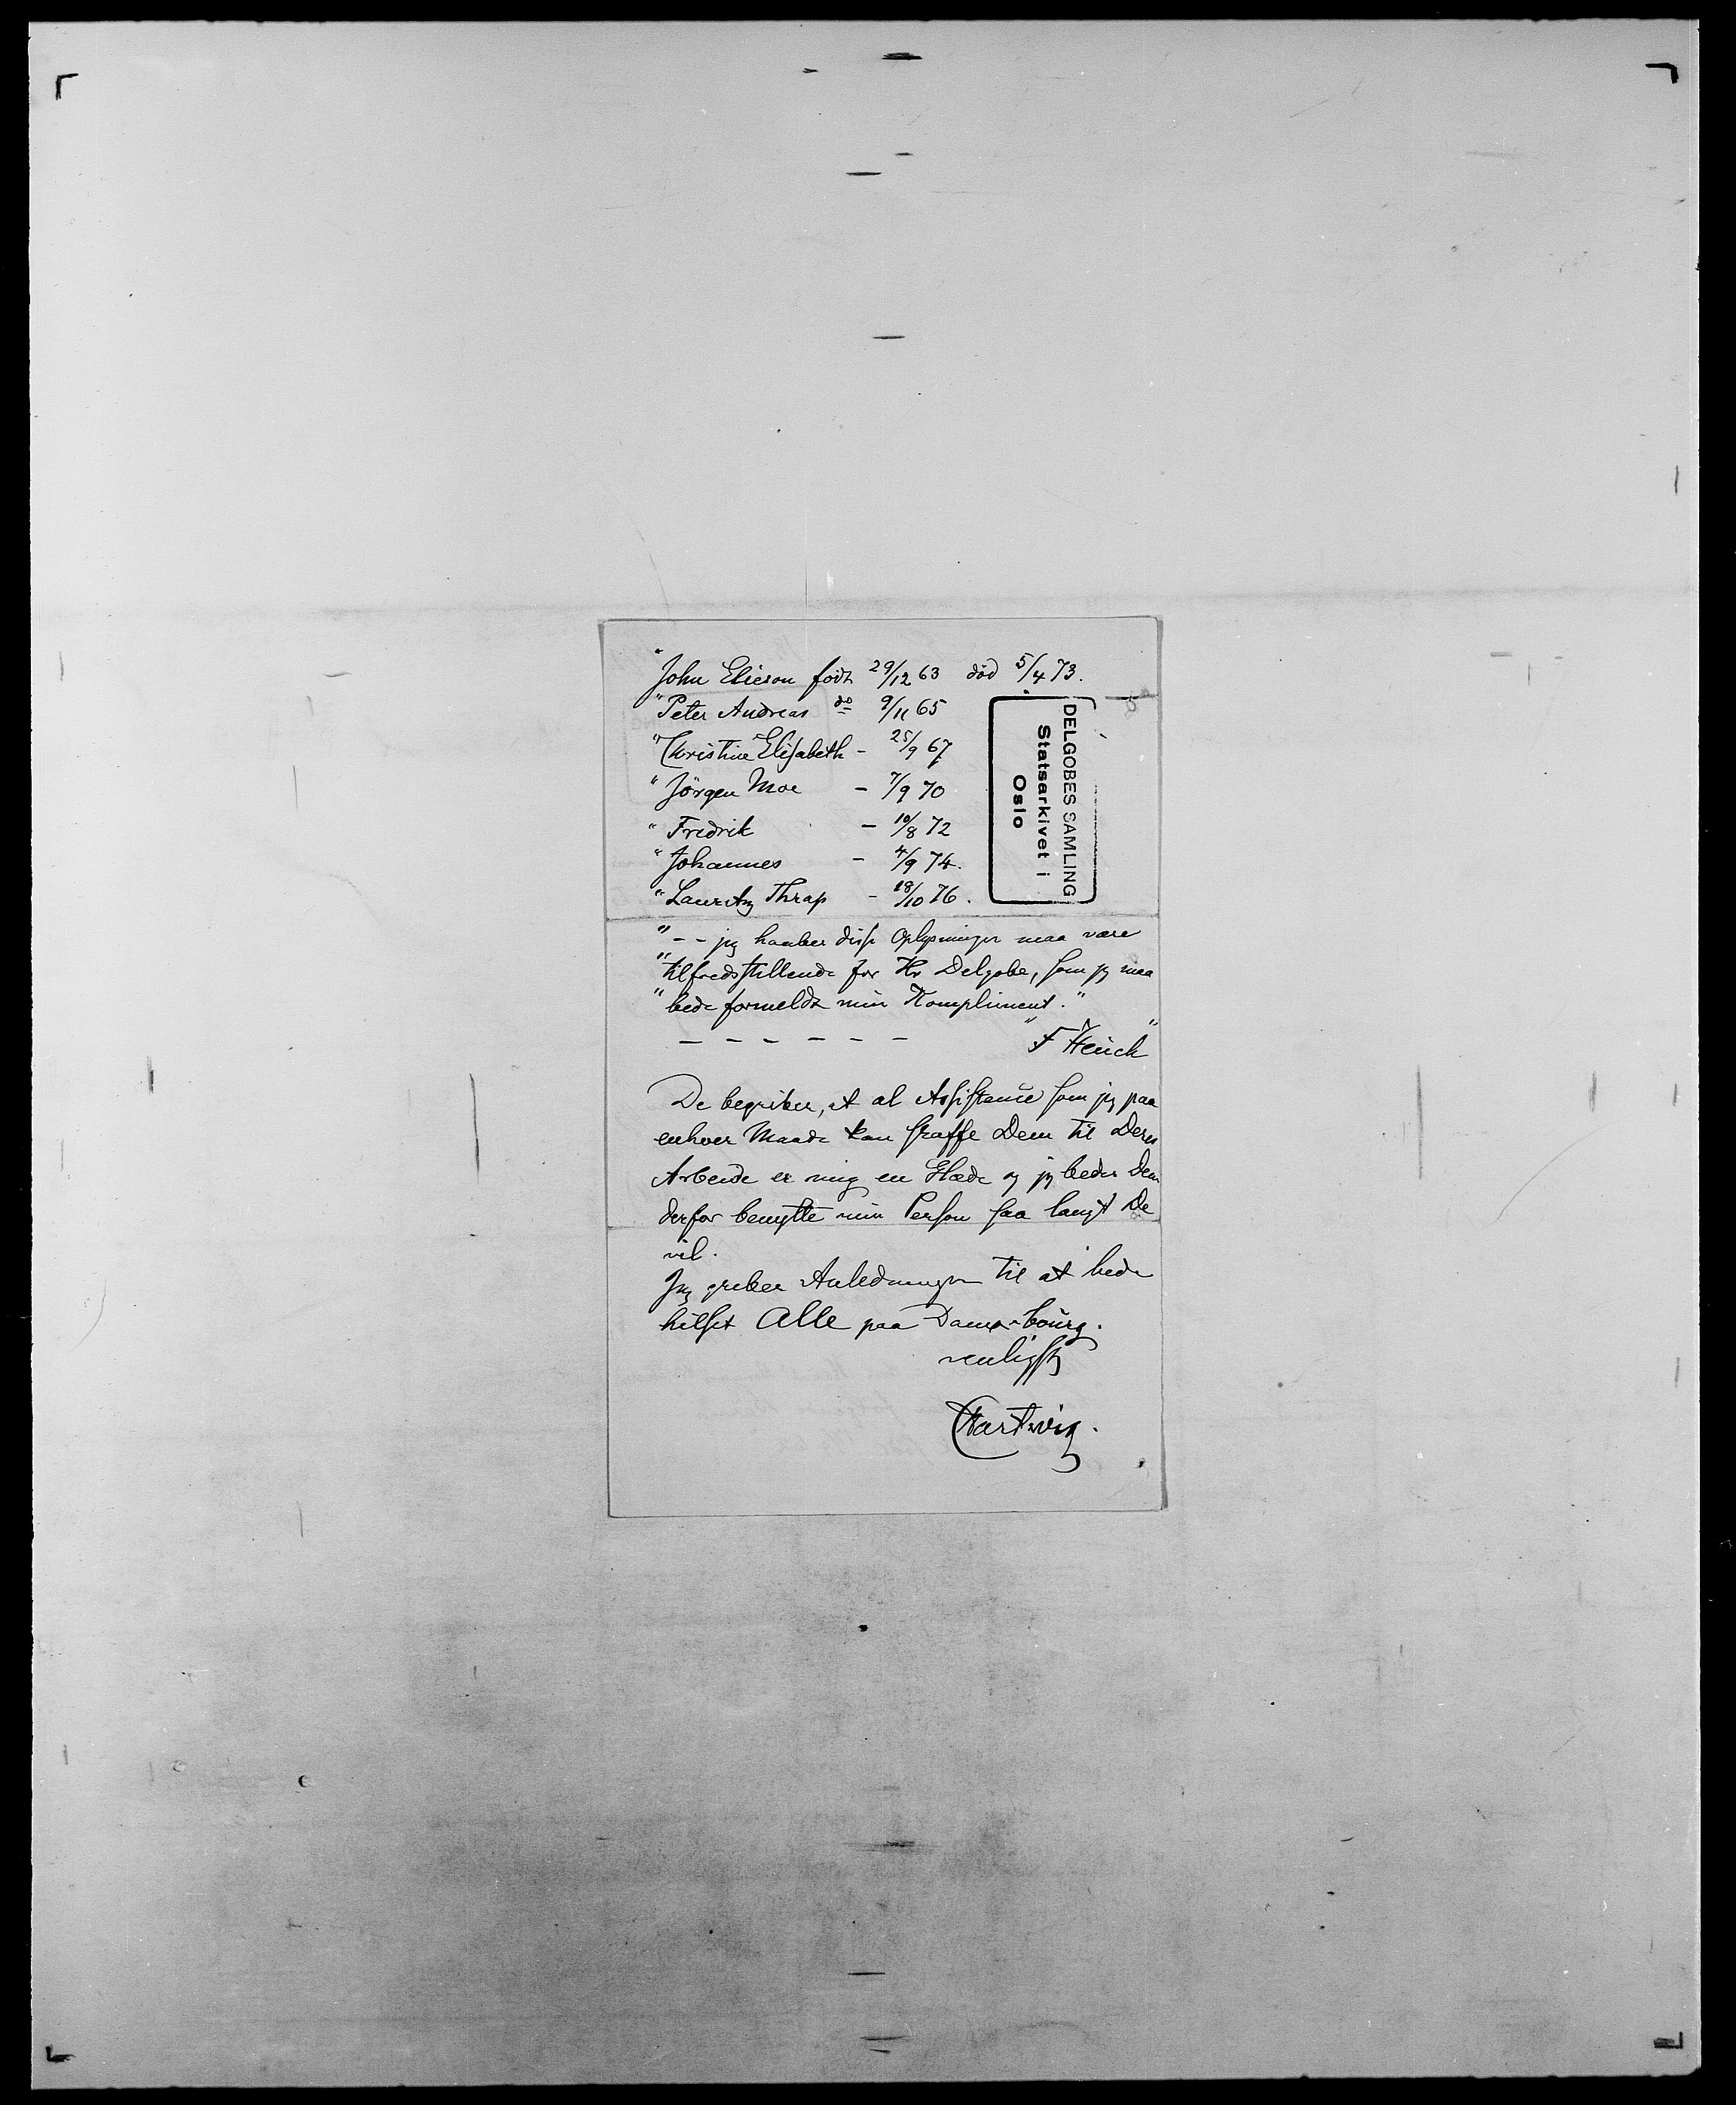 "John Elieson födt 29/12 63 död 5/4 73.
"Peter Andreas do 9/11 65
"Christine Elisabeth - 25/9 67
"Jörgen Moe - 7/9 70
"Fredrik - 10/8 72
"Johannes - 4/9 74.
"Lauritz Thrap - 18/10 76.
DELGOBES SAMLING
Statsarkivet i
Oslo
"- - jeg haaber disse Oplysninger maa være
"tilfredsstillende for Hr Delgobe, som jeg maa
"bede formeldt min Kompliment."
- - - - - - "F Heuch"
De begriber, at al Assistance som jeg paa
enhver Maade kan skaffe Dem til Deres
Arbeide er mig en Glæde og jeg beder Dem
derfor benytte min Person saa langt De
vil.
Jeg griber Anledningen til at bede
hilset Alle paa
venligst
Hartwig.